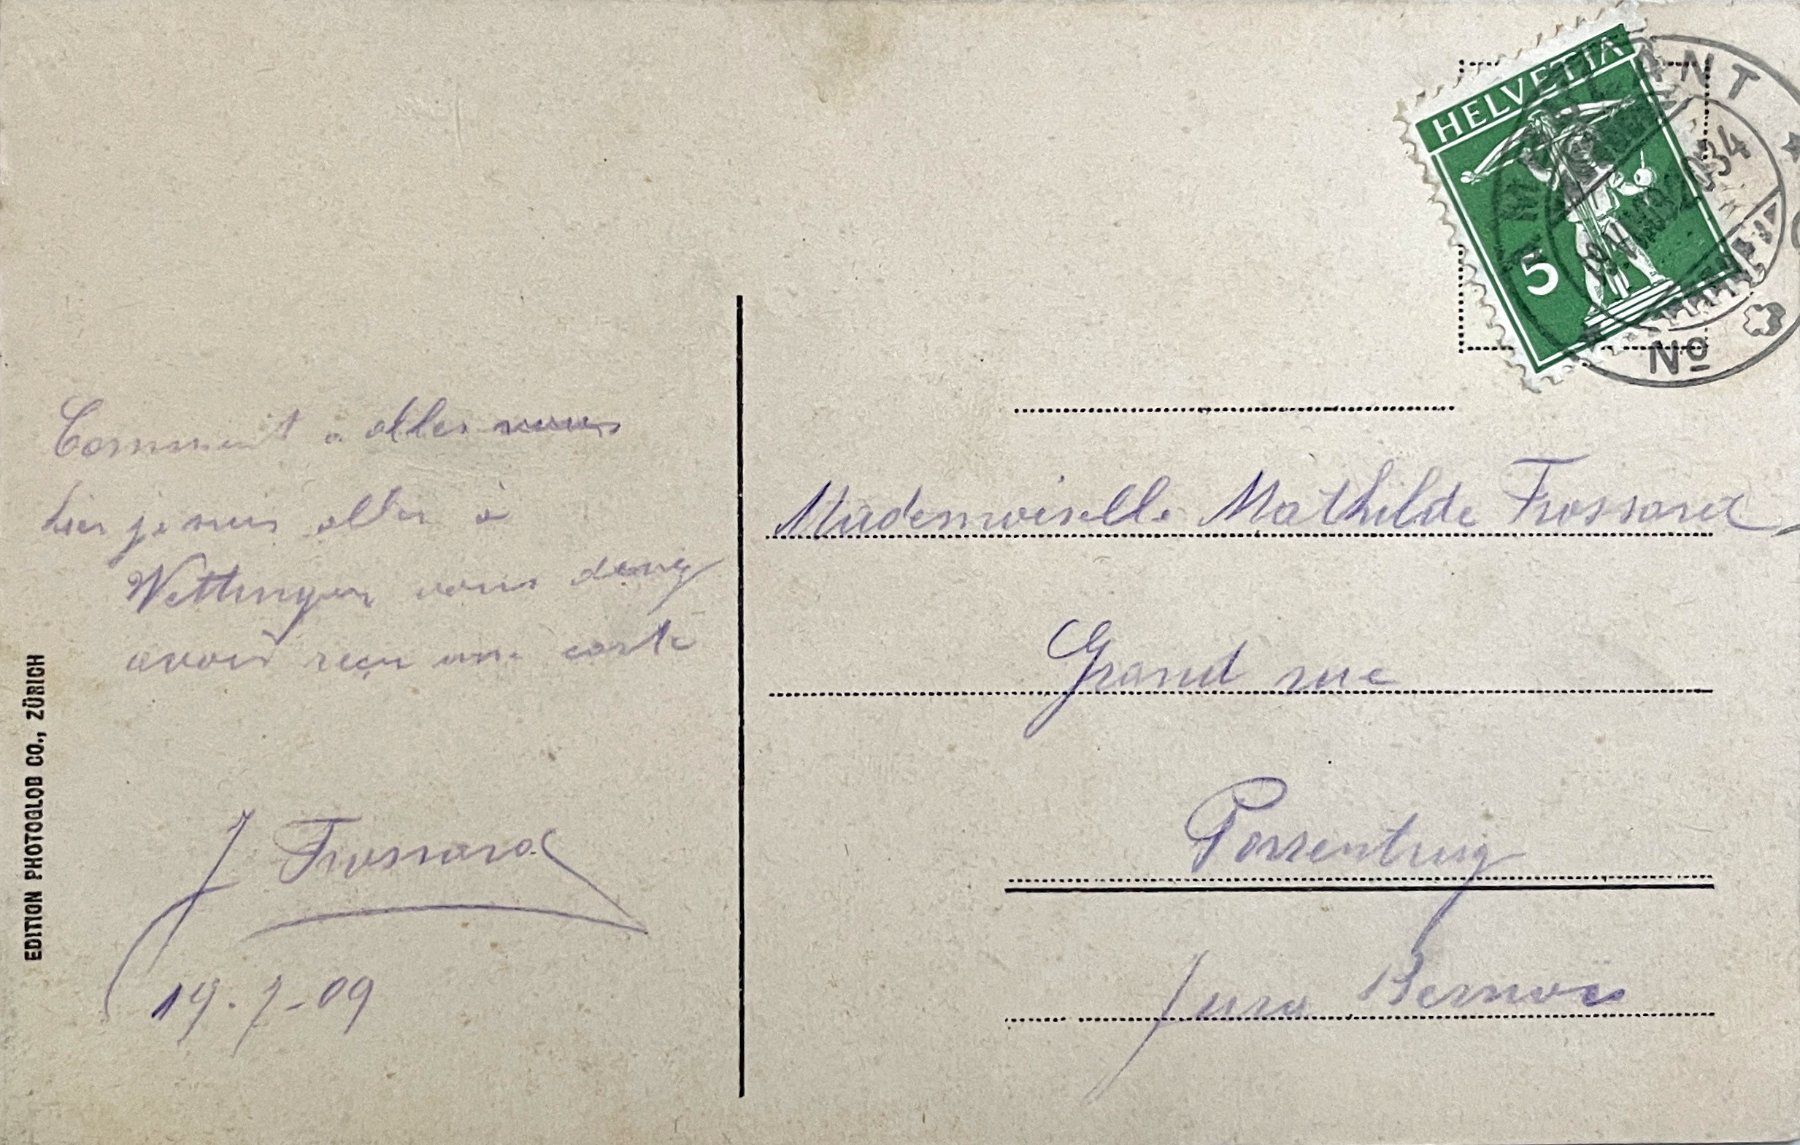 HELVETIA
5
AMBULANT
No
34
Comment a aller vous
hier je suis aller à
Wettingen vous
avoir reçu une carte
J Frossard
19.7-09
EDITION PHOTOGLOB CO., ZÜRICH
Mademoiselle Mathilde Frossard
Grand rue
Porrentruy
Jura Bernois